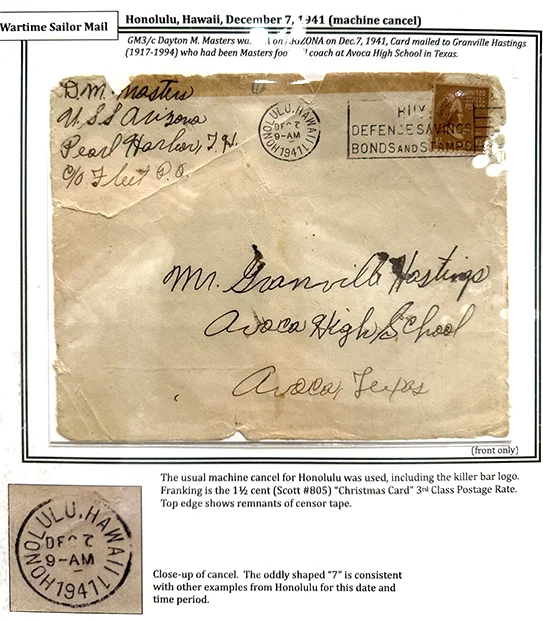 Wartime Sailor Mail
Honolulu, Hawaii, December 7, 1941 (machine cancel)
GM3/c Dayton M. Masters on ARIZONA on Dec.7, 1941, Card mailed to Granville Hastings
(1917-1994) who had been Masters coach at Avoca High School in Texas.
D.M. Masters
U.S.S Arizona
Pearl Harbor, T.H.
c/o Fleet P.O.
HONOLULU, HAWAII
DEC 7
9-AM
1941
BUY
DEFENSE SAVINGS
BONDS AND STAMPS
UNITED STATES
Mr. Granville Hastings
Avoca High School
Avoca, Texas
(front only)
The usual machine cancel for Honolulu was used, including the killer bar logo.
Franking is the 1½ cent (Scott #805) "Christmas Card" 3rd Class Postage Rate.
Top edge shows remnants of censor tape.
HONOLULU, HAWAII
DEC 7
9-AM
1941
Close-up of cancel. The oddly shaped "7" is consistent
with other examples from Honolulu for this date and
time period.